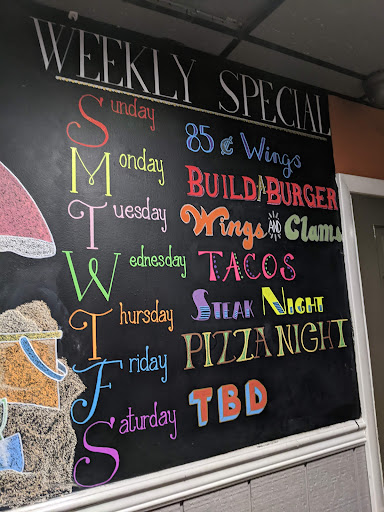 WEEKLY SPECIAL
Sunday 85¢ Wings
Monday BUILD A BURGER
Tuesday Wings AND Clams
Wednesday TACOS
Thursday STEAK NIGHT
Friday PIZZA NIGHT
Saturday TBD